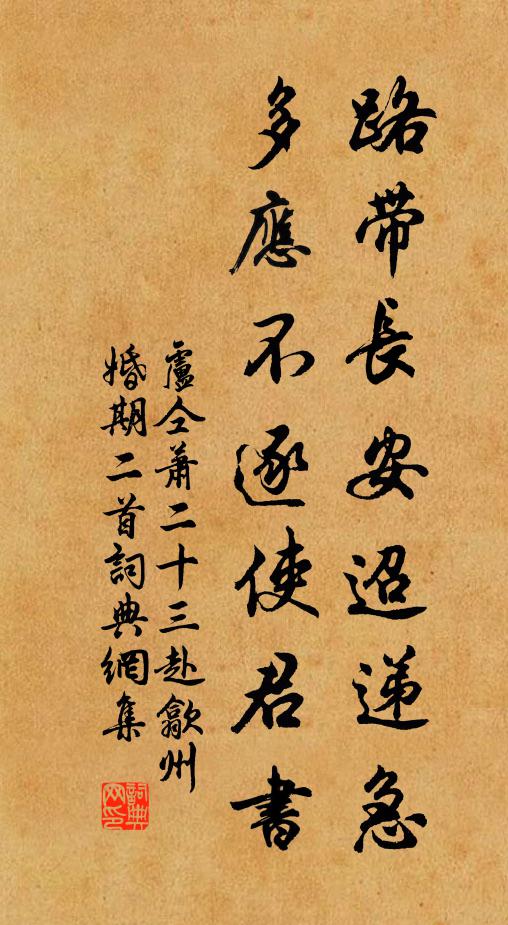 路帶長安迢遞急
多應不逐使君書
盧仝蕭二十三赴歙州
婚期二首詞典網集
詞典
网印